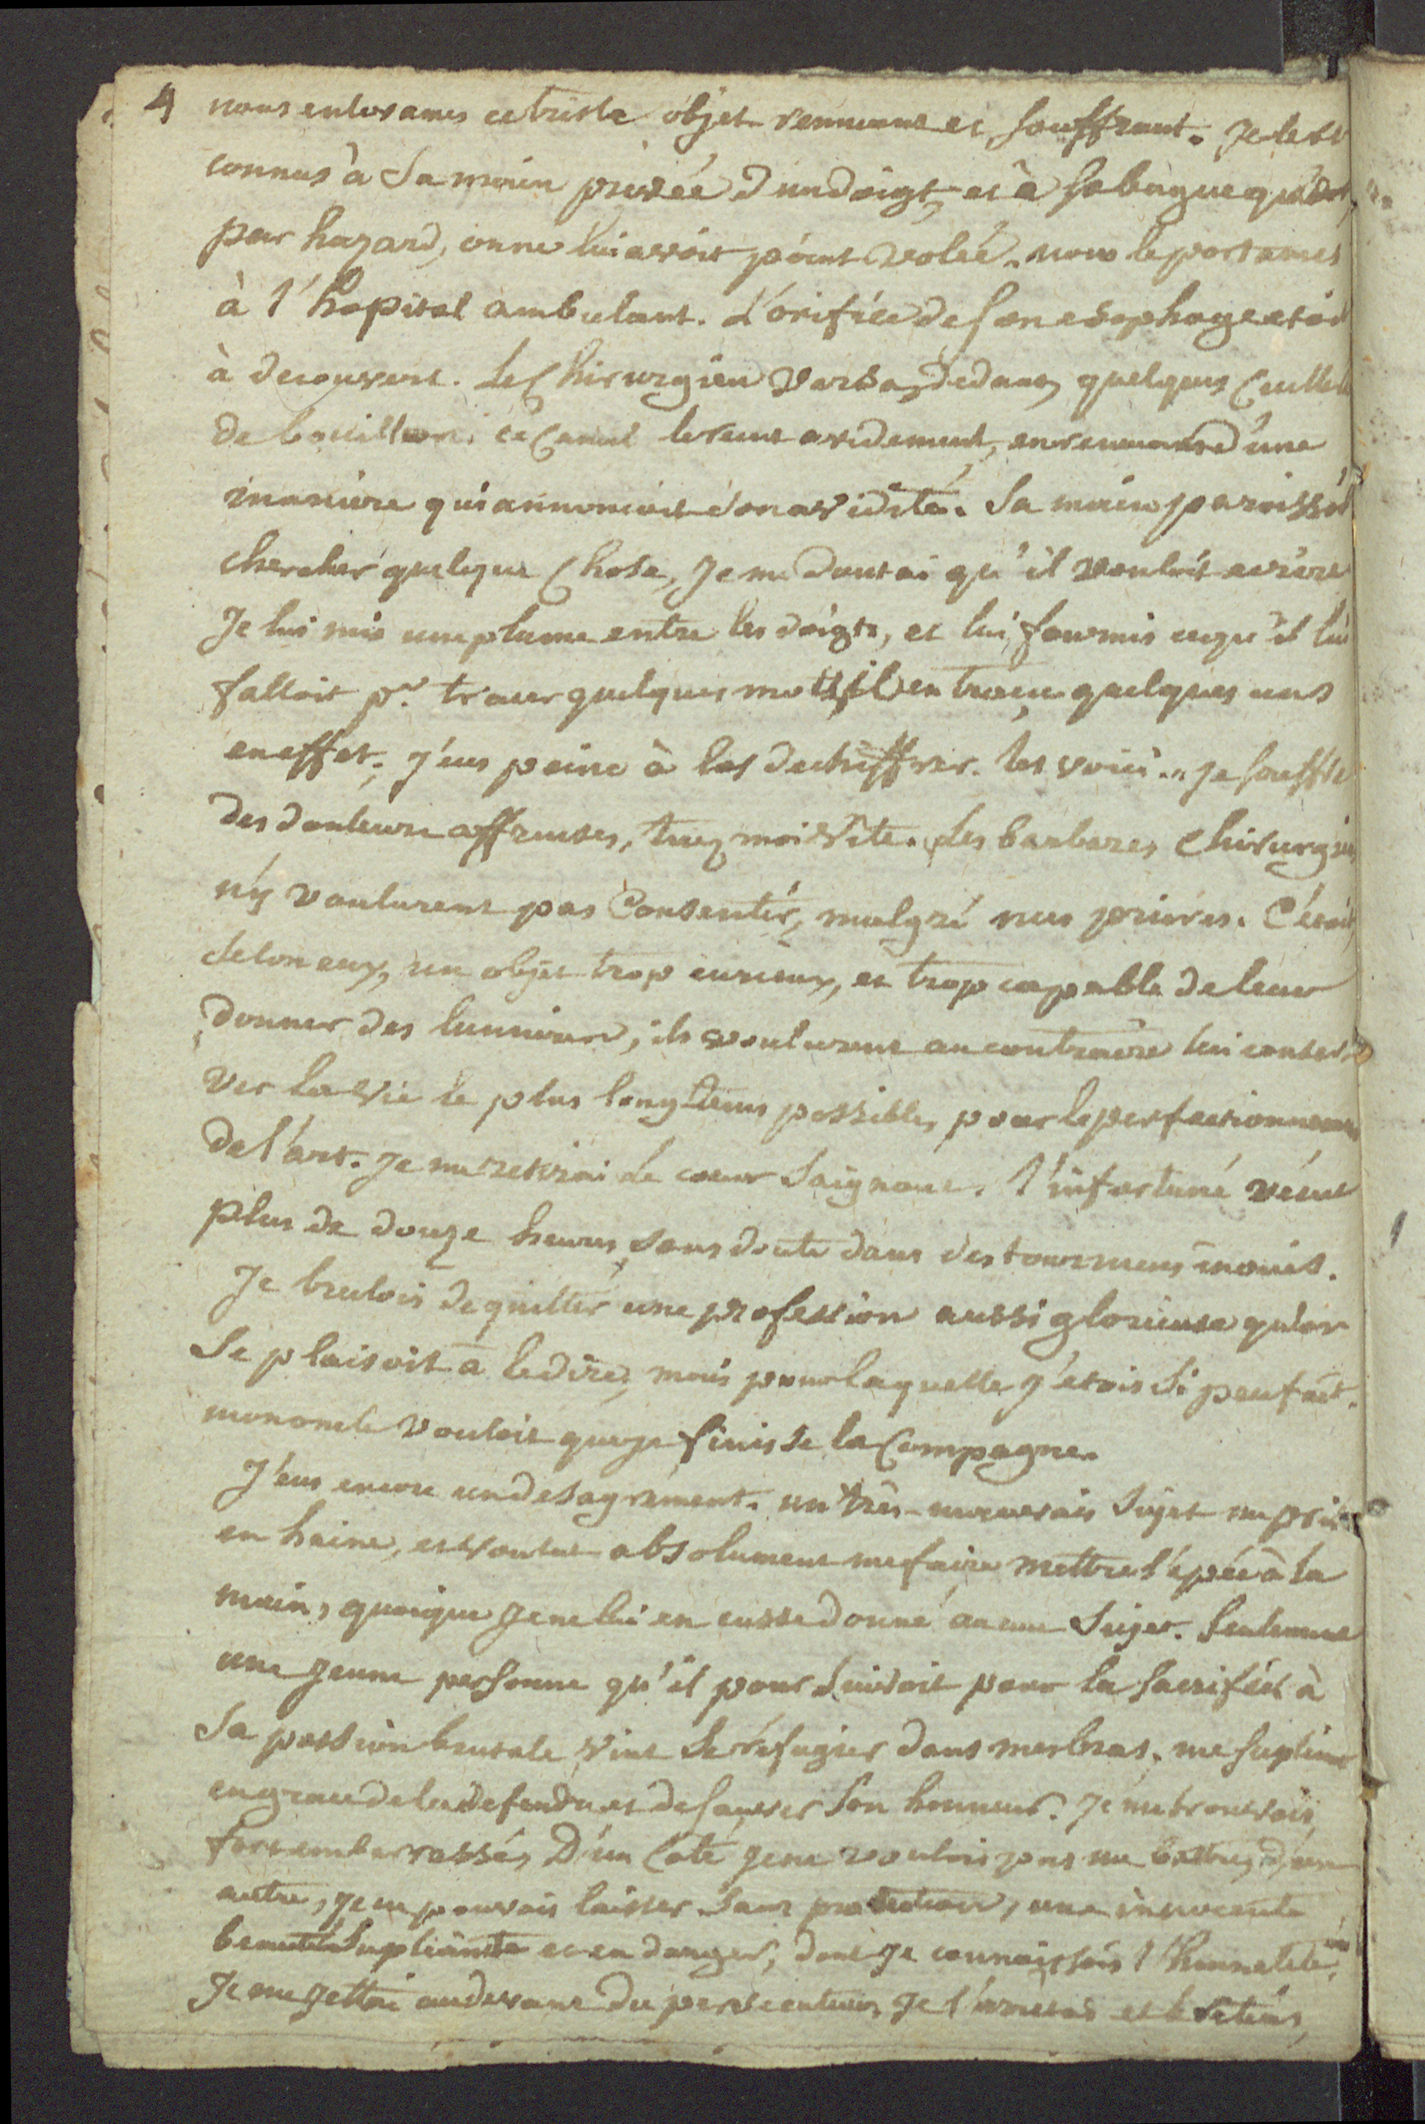 4 nous enlevames ce triste objet remuant et souffrant. Je le re
connus à sa main privée d'un doigt, et à sa bague que
par hazard, on ne lui avoit point volée. nous le portames
à l'hopital ambulant. L'orifice de son esophage etoit
à decouvert. Le Chirurgien versa dedans quelques Cuillers
de bouillon; ce Canal le reçut avidement, en remuant d'une
maniere qui annoncoit son avidité. Sa main paroissoit
chercher quelque Chose, Je me doutai qu'il vouloit ecrire
Je lui mis une plume entre les doigts, et lui fournis ce qu'il lui
falloit pr. tracer quelques mots, il en traça quelques uns
en effet; J'eus peine à les dechiffrer. les voici... Je souffre
des douleurs affreuses, tuez moi vîte. Les barbares Chirurgiens
n'y voulurent pas Consentir, malgré nos prières. C'étoit
selon eux, un objet trop curieux, et trop capable de leur
donner des lumieres; ils voulurent au contraire lui conser-
ver la vie le plus longtems possible, pour le perfectionnement
de l'art. Je me retirai le coeur saignant. l'infortuné vécut
plus de douze heures, sans doute dans des tourmens inouis.
Je brulois de quitter une profession aussi glorieuse qu'on
se plaisoit à le dire, mais pour laquelle j'etois si peu fait.
mon oncle vouloit que je finisse la Campagne.
J'eus encore un desagrément. un très-mauvais sujet me prit
en haine, et voulut absolument me faire mettre l'épée à la
main, quoique Je ne lui en eusse donné aucun sujet. Seulement
une jeune personne qu'il poursuivoit pour la sacrifier à
sa passion brutale, vint se réfugier dans mes bras, me supliant
en grace de la defendre et de sauver son honneur. Je me trouvois
fort embarrassé, D'un Coté je ne voulois pas me battre, d'un
autre, je ne pouvois laisser sans protection, une innocente
beauté supliante et en danger, dont je connoissois l'honneteté.
Je me jettai au devant du persecuteur, je l'arretai et le retins,